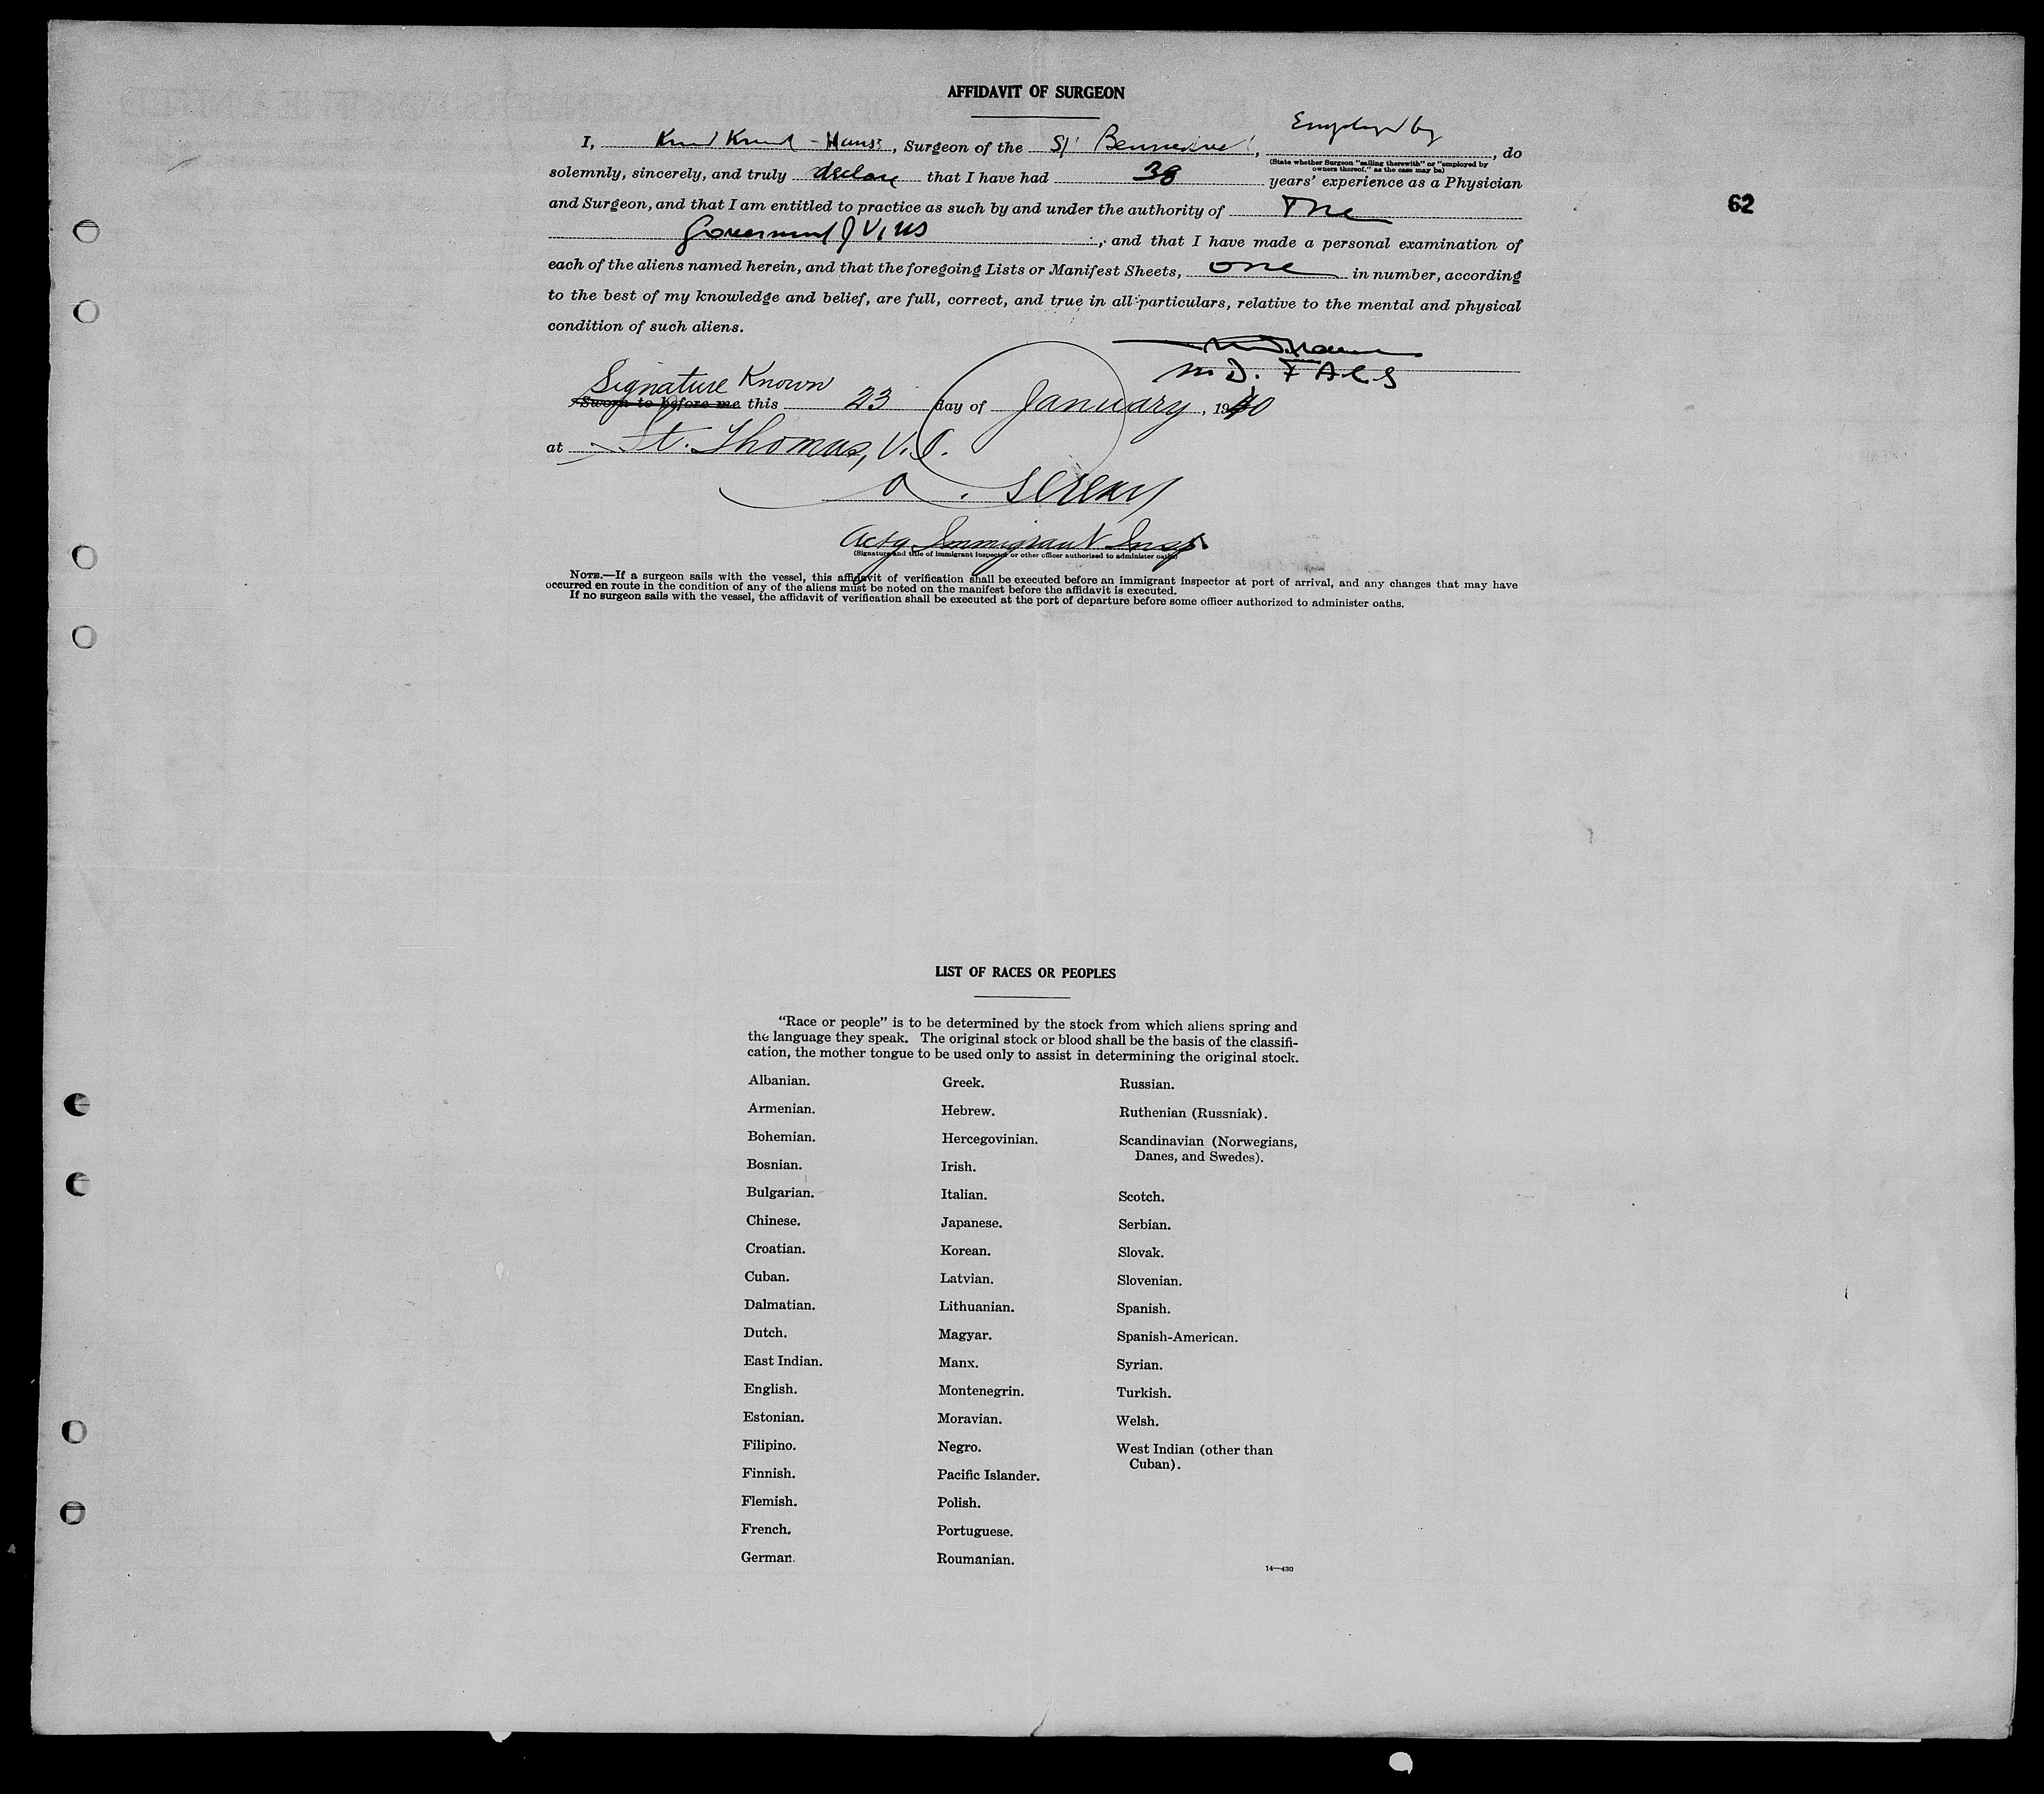 AFFIDAVIT OF SURGEON
Employed by
I, Knud Knud-Hans, Surgeon of the S/, do
(State whether Surgeon "sailing therewith" or "employed by owners thereof," as the case may be)
solemnly, sincerely, and truly declare that I have had 38 years' experience as a Physician
and Surgeon, and that I am entitled to practice as such by and under the authority of The
62
Goverment of V, US, and that I have made a personal examination of
each of the aliens named herein, and that the foregoing Lists or Manifest Sheets, one in number, according
to the best of my knowledge and belief, are full, correct, and true in all particulars, relative to the mental and physical
condition of such aliens.
M D. F A C S
Signature Known
Sworn to before me this 23 day of January, 1940
at St. Thomas, V.I.
Actg Immigrant Insp.
(Signature and title of immigrant inspector or other officer authorized to administer oaths)
NOTE.—If a surgeon sails with the vessel, this affidavit of verification shall be executed before an immigrant inspector at port of arrival, and any changes that may have
occurred en route in the condition of any of the aliens must be noted on the manifest before the affidavit is executed.
If no surgeon sails with the vessel, the affidavit of verification shall be executed at the port of departure before some officer authorized to administer oaths.
LIST OF RACES OR PEOPLES
"Race or people" is to be determined by the stock from which aliens spring and
the language they speak. The original stock or blood shall be the basis of the classifi-
cation, the mother tongue to be used only to assist in determining the original stock.
Albanian.
Armenian.
Bohemian.
Bosnian.
Bulgarian.
Chinese.
Croatian.
Cuban.
Dalmatian.
Dutch.
East Indian.
English.
Estonian.
Filipino.
Finnish.
Flemish.
French.
German.
Greek.
Hebrew.
Hercegovinian.
Irish.
Italian.
Japanese.
Korean.
Latvian.
Lithuanian.
Magyar.
Manx.
Montenegrin.
Moravian.
Negro.
Pacific Islander.
Polish.
Portuguese.
Roumanian.
Russian.
Ruthenian (Russniak).
Scandinavian (Norwegians,
Danes, and Swedes).
Scotch.
Serbian.
Slovak.
Slovenian.
Spanish.
Spanish-American.
Syrian.
Turkish.
Welsh.
West Indian (other than
Cuban).
14—430